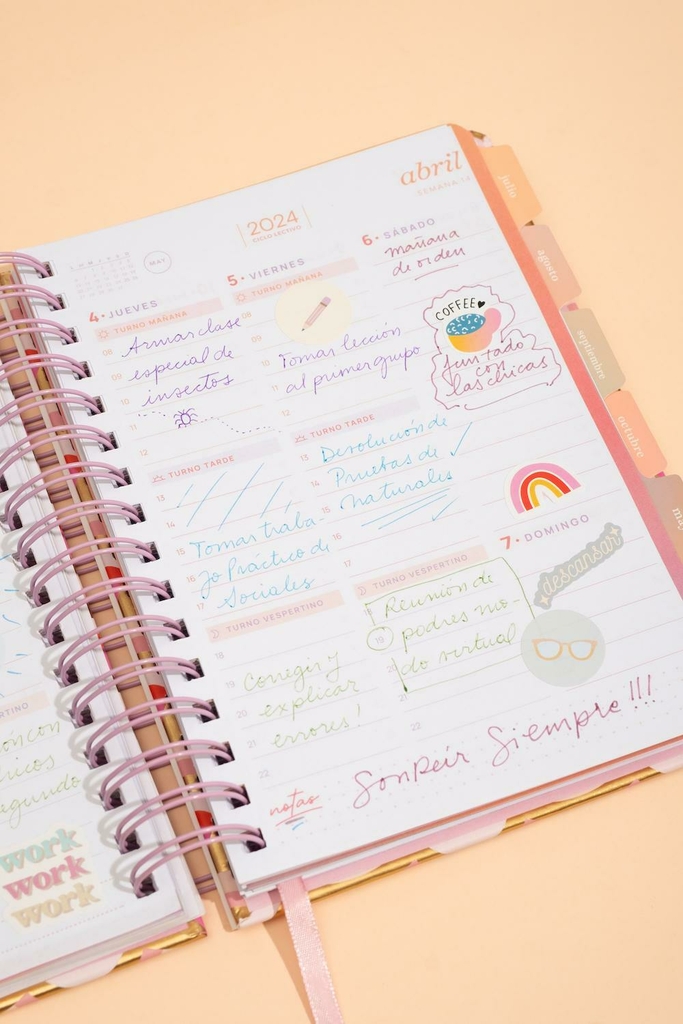 abril
SEMANA 14
2024
CICLO LECTIVO
MAY
4· JUEVES
TURNO MAÑANA
08
09
10
11
12
Armar clase
especial de
insectos
TURNO TARDE
13
14
15
16
17
Tomar traba-
jo Práctico de
Sociales
TURNO VESPERTINO
18
19
20
21
22
Corregir y
explicar
errores!
5· VIERNES
TURNO MAÑANA
Tomar lección
al primer grupo
TURNO TARDE
Devolución de
Pruebas de
naturales
TURNO VESPERTINO
Reunión de
padres mo-
do virtual
6· SÁBADO
mañana
de orden
COFFEE
juntado
con
las chicas
7· DOMINGO
descansar
notas
Sonreir Siempre!!!
julio
agosto
septiembre
octubre
work
work
work